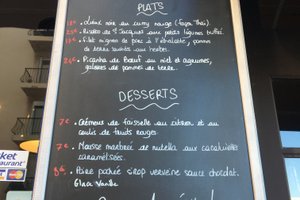 PLATS
18€ . Lieu noir au curry rouge (façon Thaï)
22€ . Risotto de St Jacques aux petits légumes
17€ . Filet mignon de porc à l'échalote, pommes
de terre sautées aux herbes.
24€ . Picanha de Bœuf au miel et agrumes,
galettes de pommes de terre.
DESSERTS
7€ . Crémeux de faisselle au citron et au
coulis de fruits rouges.
7€ . Mousse marbrée de nutella aux cacahuètes
caramélisées.
8€ . Poire pochée sirop verveine sauce chocolat.
Glace Vanille
ket
staurant